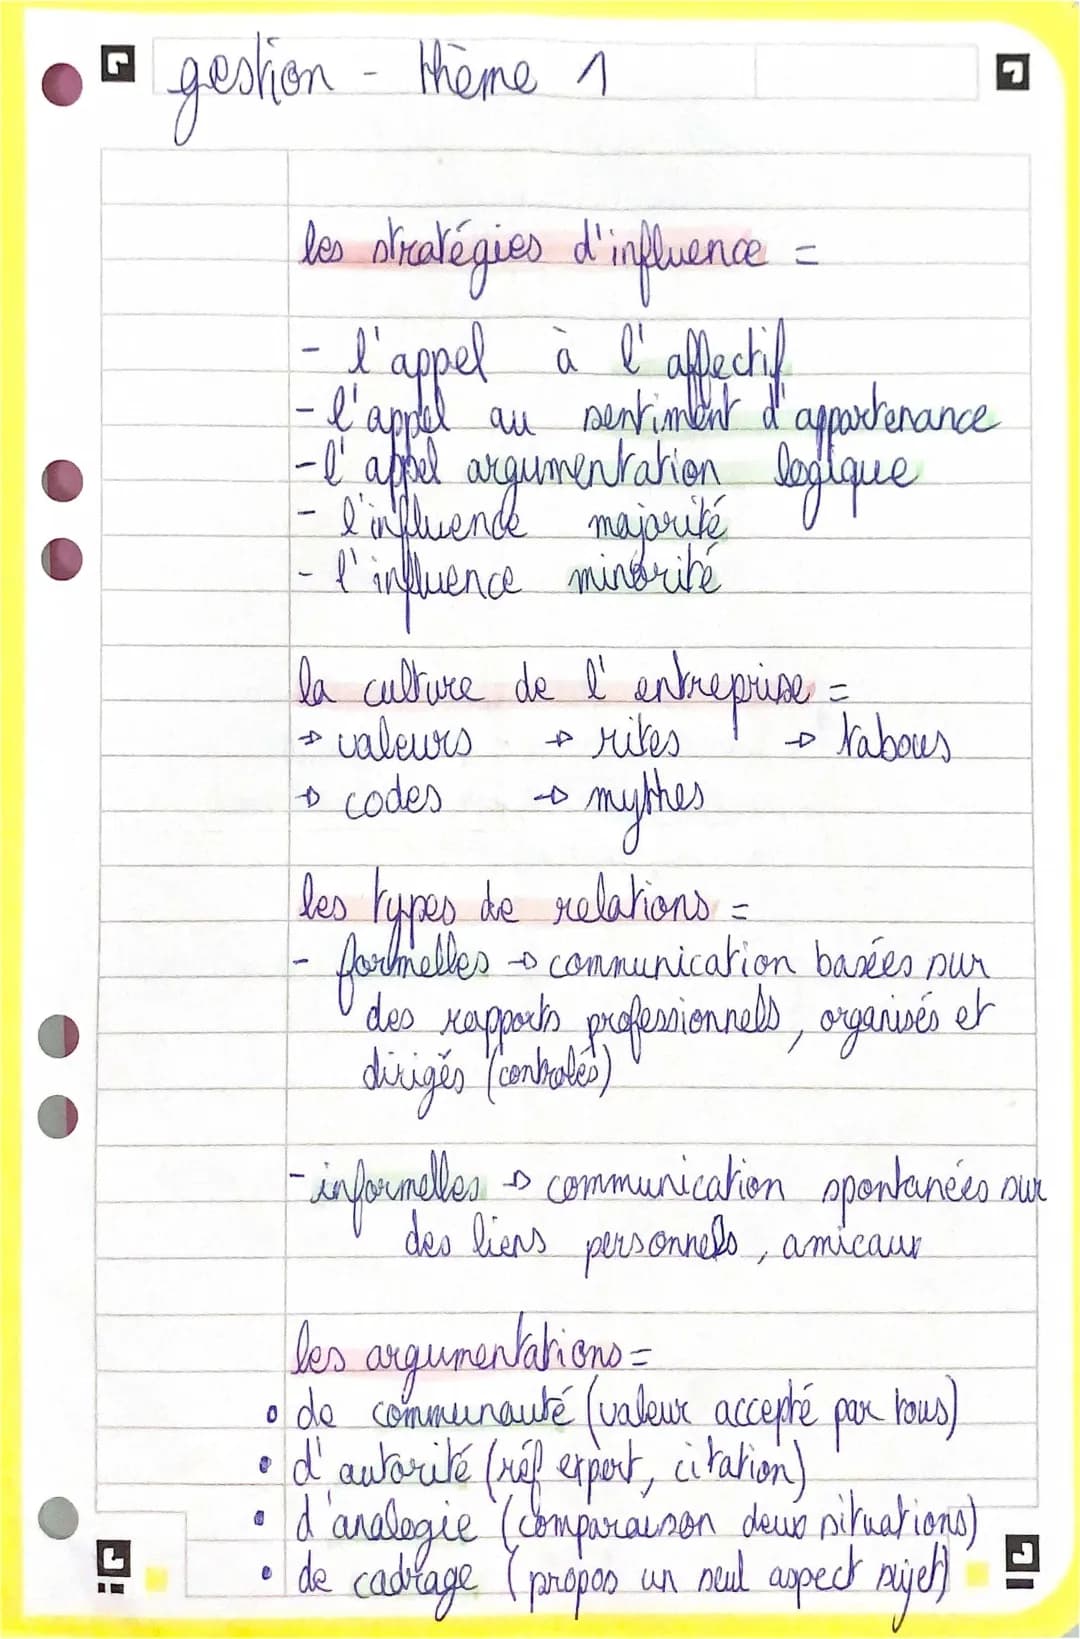 gestion - thème 1
les stratégies d'influence =
- l'appel à l'affectif
- l'appel au sentiment d'appartenance
- l'appel argumentation logique
- l'influence majorité
- l'influence minorité
la culture de l'entreprise =
→ valeurs → rites → tabous
→ codes → mythes
les types de relations =
- formelles → communication basées sur
des rapports professionnels, organisés et
dirigés (contrôlés)
- informelles → communication spontanées sur
des liens personnels, amicaux
les argumentations =
• de communauté (valeur accepté par tous)
• d'autorité (réf expert, citation)
• d'analogie (comparaison deux situations)
• de cadrage (propos un seul aspect sujet)